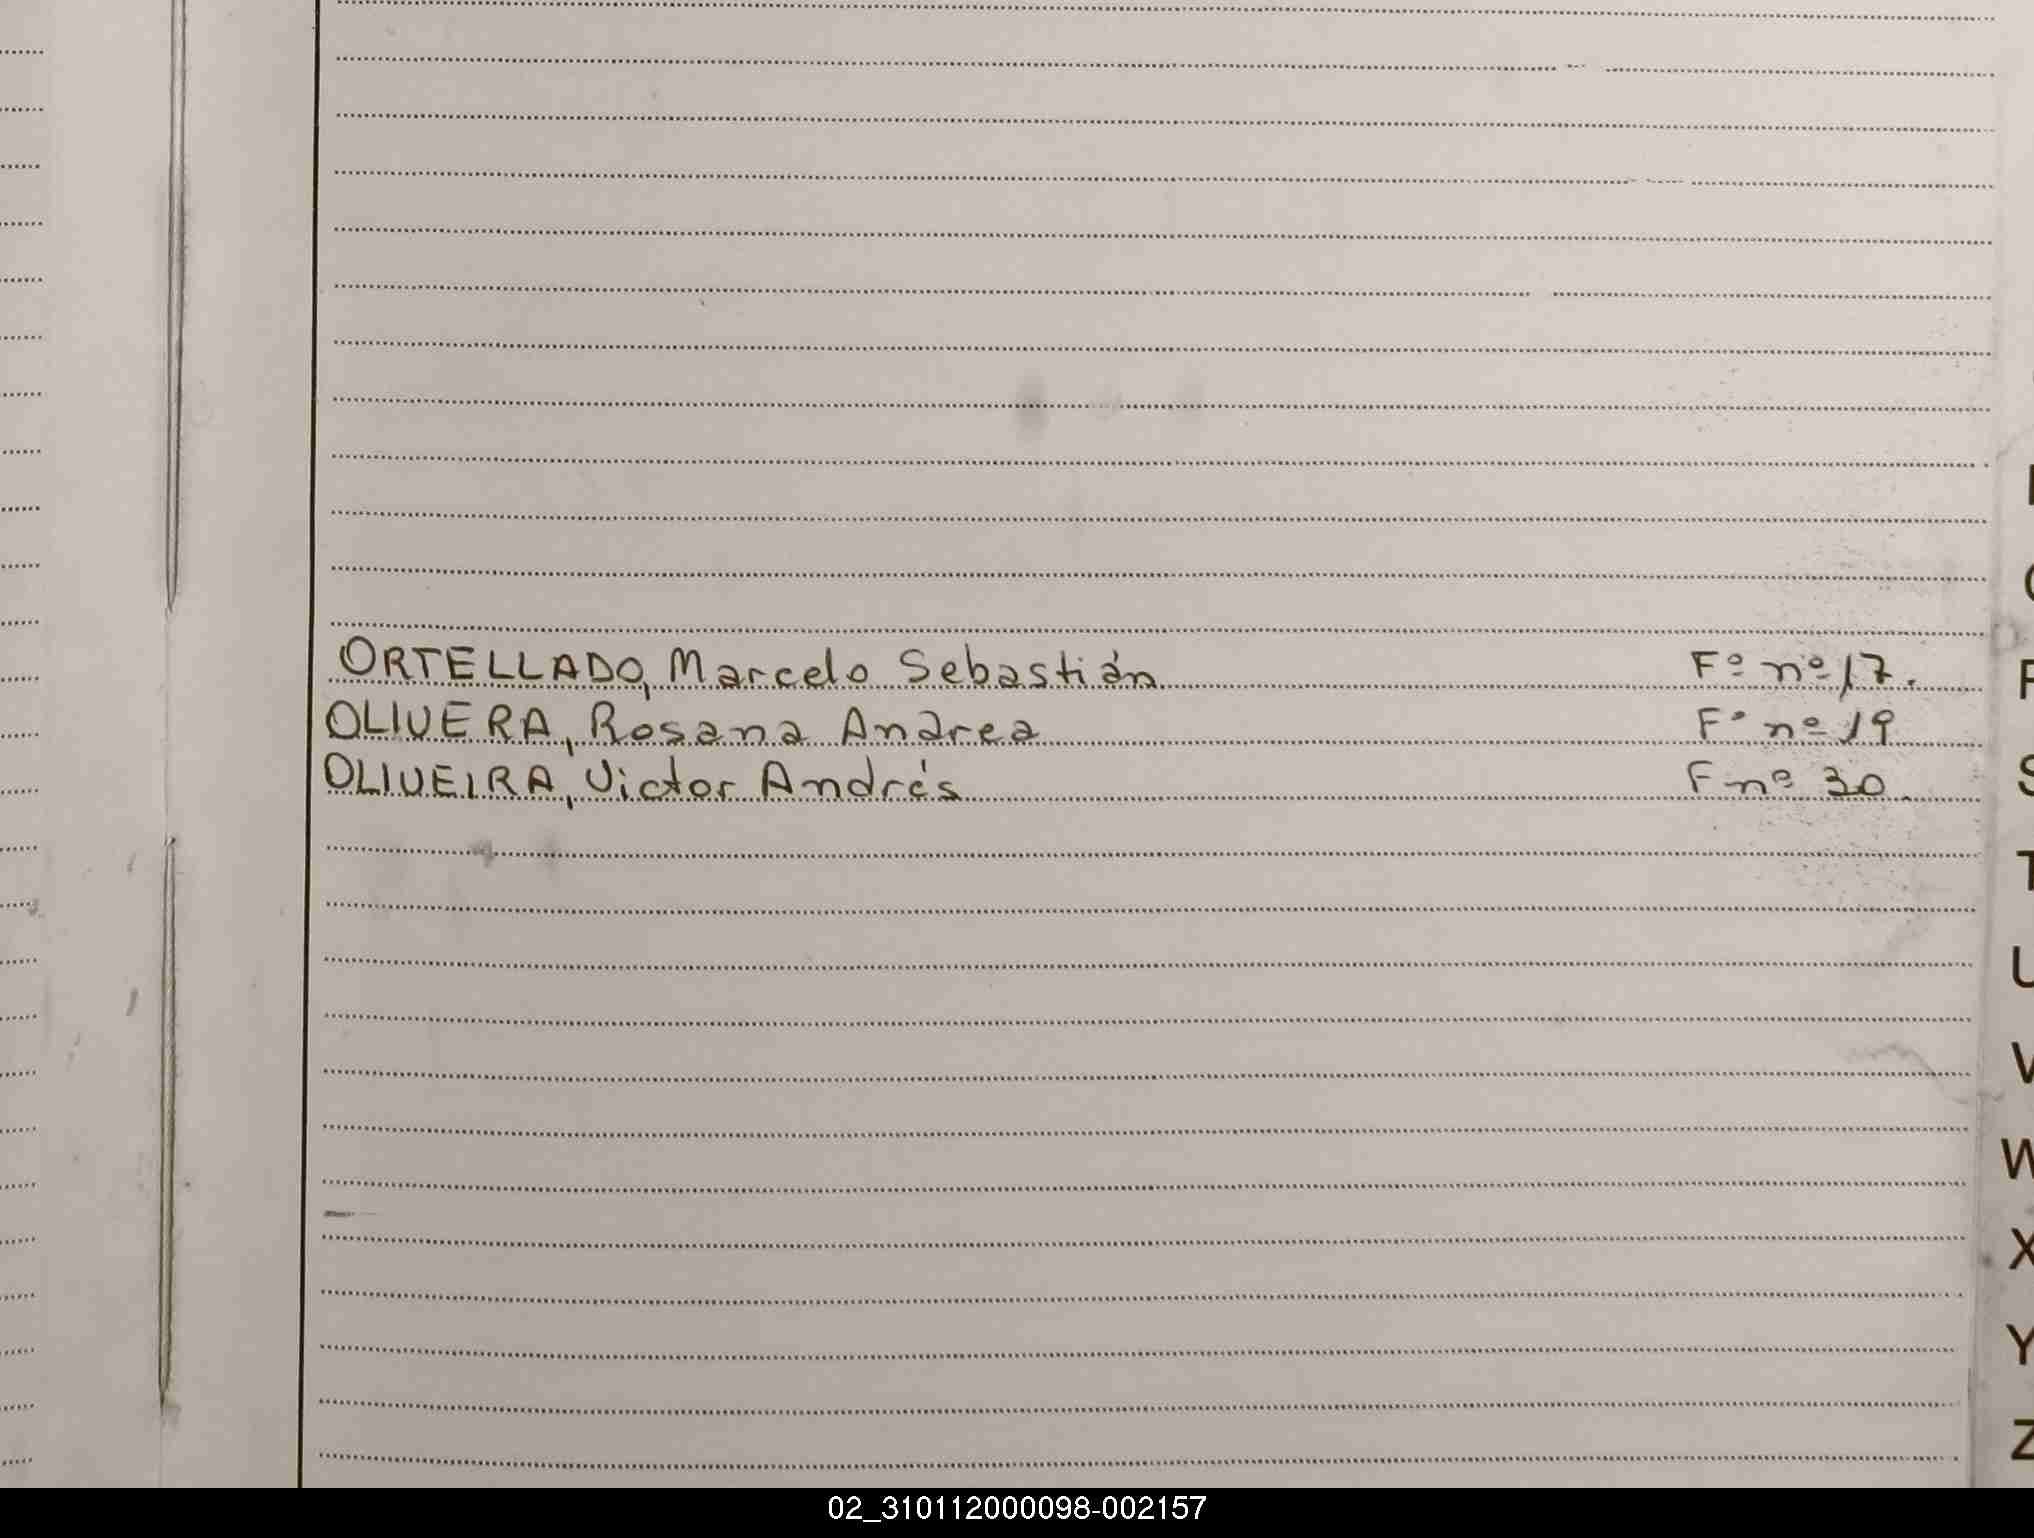 ORTELLADO, Marcelo Sebastián Fº nº 17.
OLIVERA, Rosana Andrea Fº nº 19
OLIVEIRA, Victor Andrés F nº 30.
P
S
T
U
V
W
X
Y
Z
02_310112000098-002157